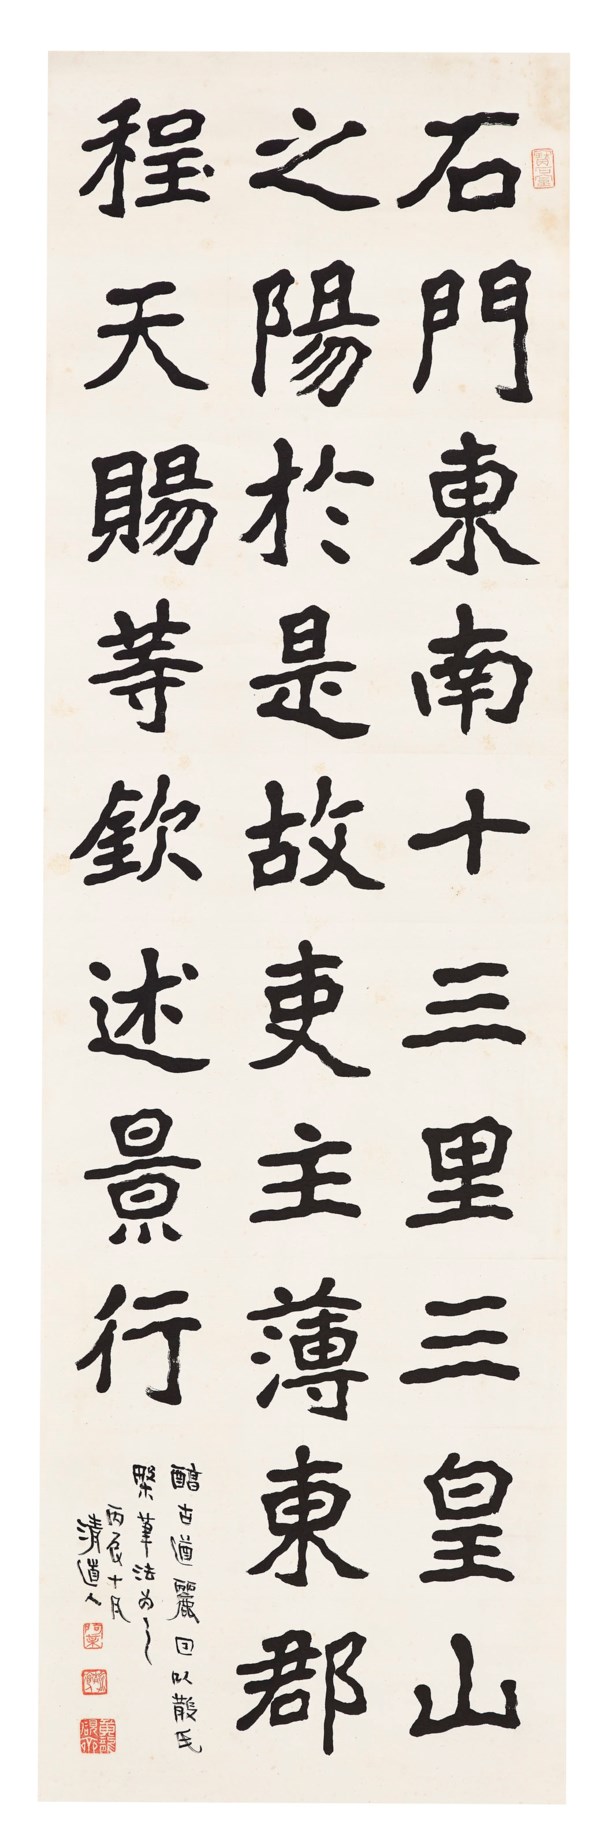 石門東南十三里三皇山
之陽於是故吏主薄東郡
程天賜等欽述景行
醕古遒麗因以散氏
槃筆法為之
丙辰十月
清道人